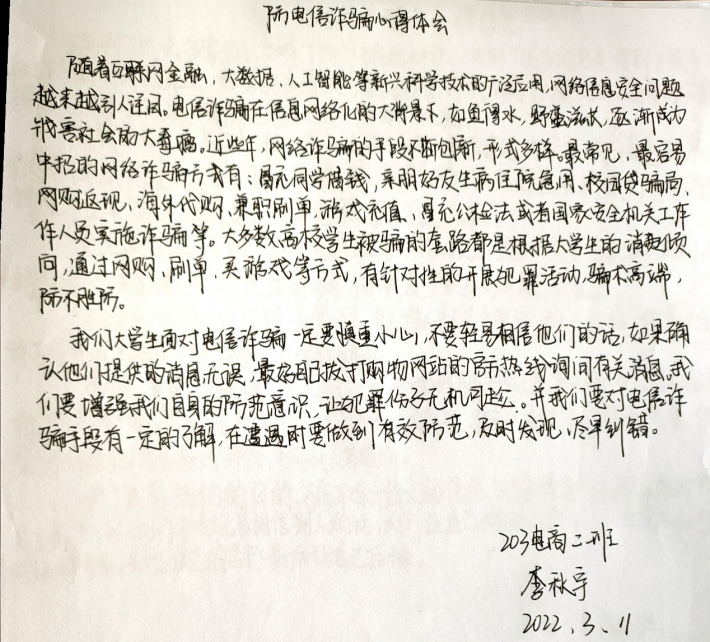 防电信诈骗心得体会
随着互联网金融，大数据、人工智能等新兴科学技术的广泛应用，网络信息安全问题
越来越引人注目。电信诈骗在信息网络化的大背景下，如鱼得水，野蛮滋长，逐渐成为
戕害社会的大毒瘤。近些年，网络诈骗的手段不断创新，形式多样。最常见、最容易
中招的网络诈骗方式有：冒充同学借钱，亲朋好友生病住院急用、校园贷骗局、
网购返现、海外代购、兼职刷单，游戏充值、冒充公检法或者国家安全机关工作
作人员实施诈骗等。大多数高校学生被骗的套路都是根据大学生的消费倾
向，通过网购、刷单、买游戏等方式，有针对性的开展犯罪活动，骗术高端，
防不胜防。
我们大学生面对电信诈骗一定要慎重小心，不要轻易相信他们的话，如果确
认他们提供的消息无误，最好自己拨打购物网站的官方热线询问有关消息。我
们要增强我们自身的防范意识，让犯罪份子无机可趁。并我们要对电信诈
骗手段有一定的了解，在遭遇时要做到有效防范，及时发现，尽早纠错。
203电商二班
李秋宇
2022.3.11